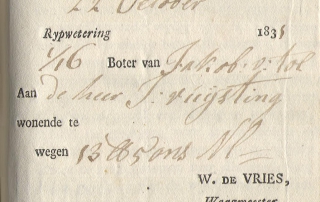 22 October
Rypwetering 1835
1/16 Boter van Jakob v: tol
Aan de heer J: vuijsting
wonende te
wegen 13 ℔ 5 ons N
W. DE VRIES,
Waagmeester